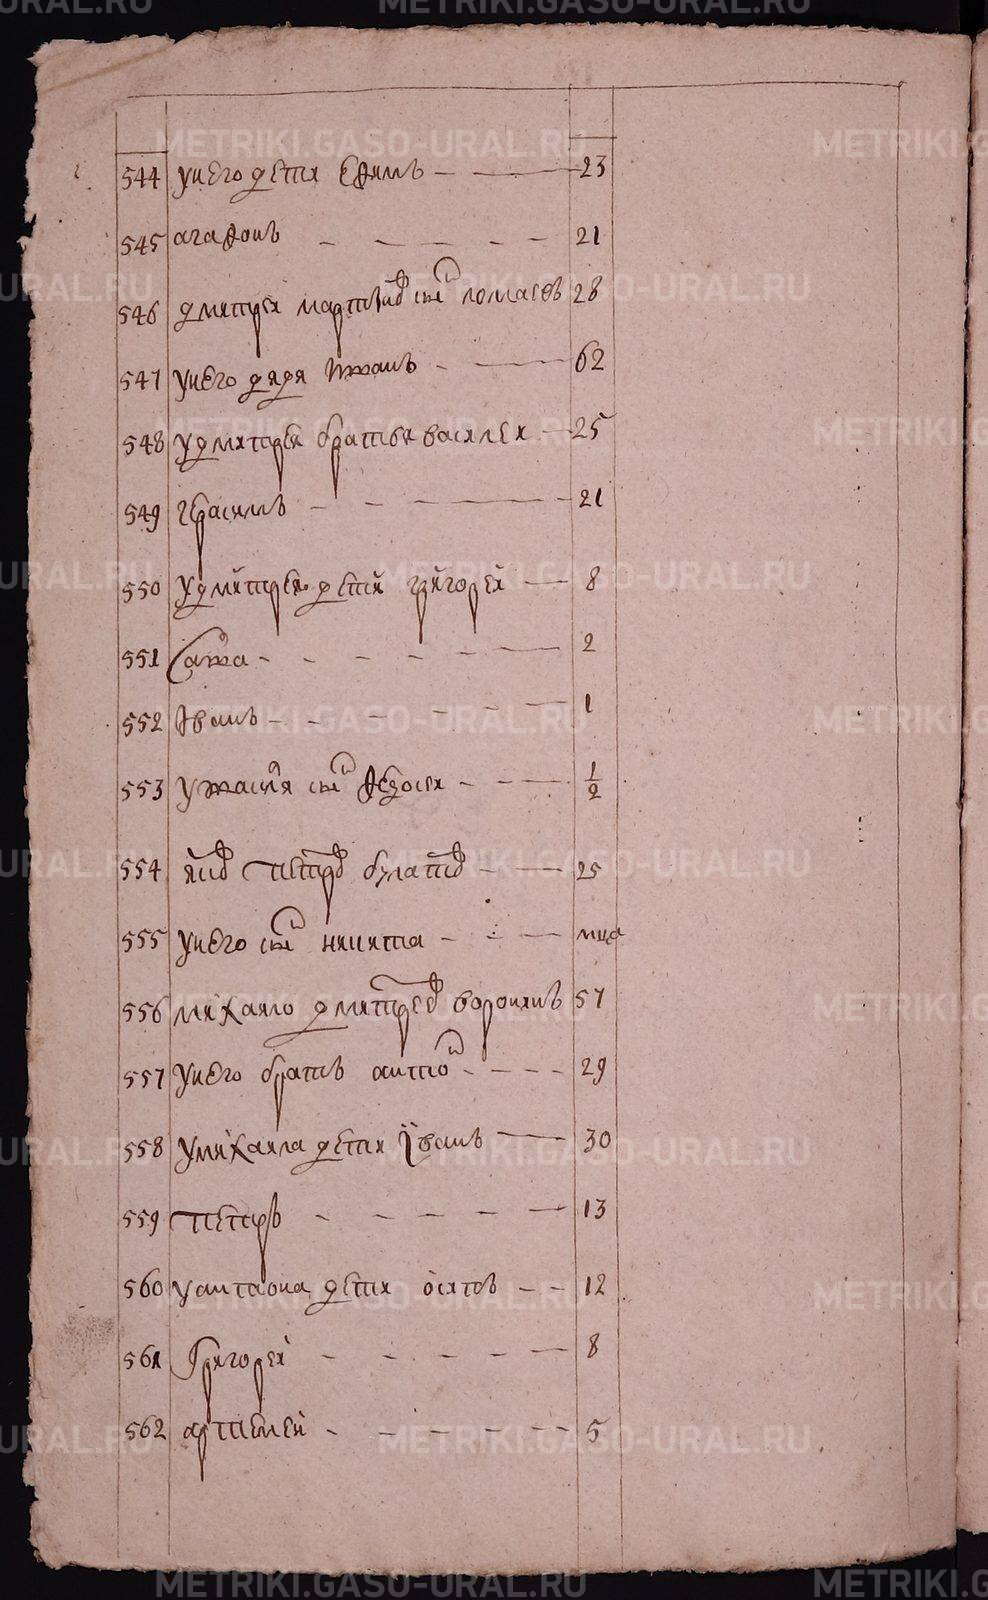 544 у него дети Ефимъ 23
545 агафонъ 21
546 дмитрей мартыновъ снъ ломаевъ 28
547 у него дядя 62
548 у дмитрея братья василеи 25
549 герасимъ 21
550 у дмитрея дети григорей 8
551 Сава 2
552 Иванъ 1
553 снъ федосеи 1/2
554 петровъ булатовъ 25
555 у него снъ никита мца
556 михаило дмитреевъ воронинъ 57
557 у него братъ антиѳ 29
558 у михаила дети Iванъ 30
559 петръ 13
560 дети осипъ 12
561 Григореи 8
562 артемей 5
METRIKI.GASO-URAL.RU